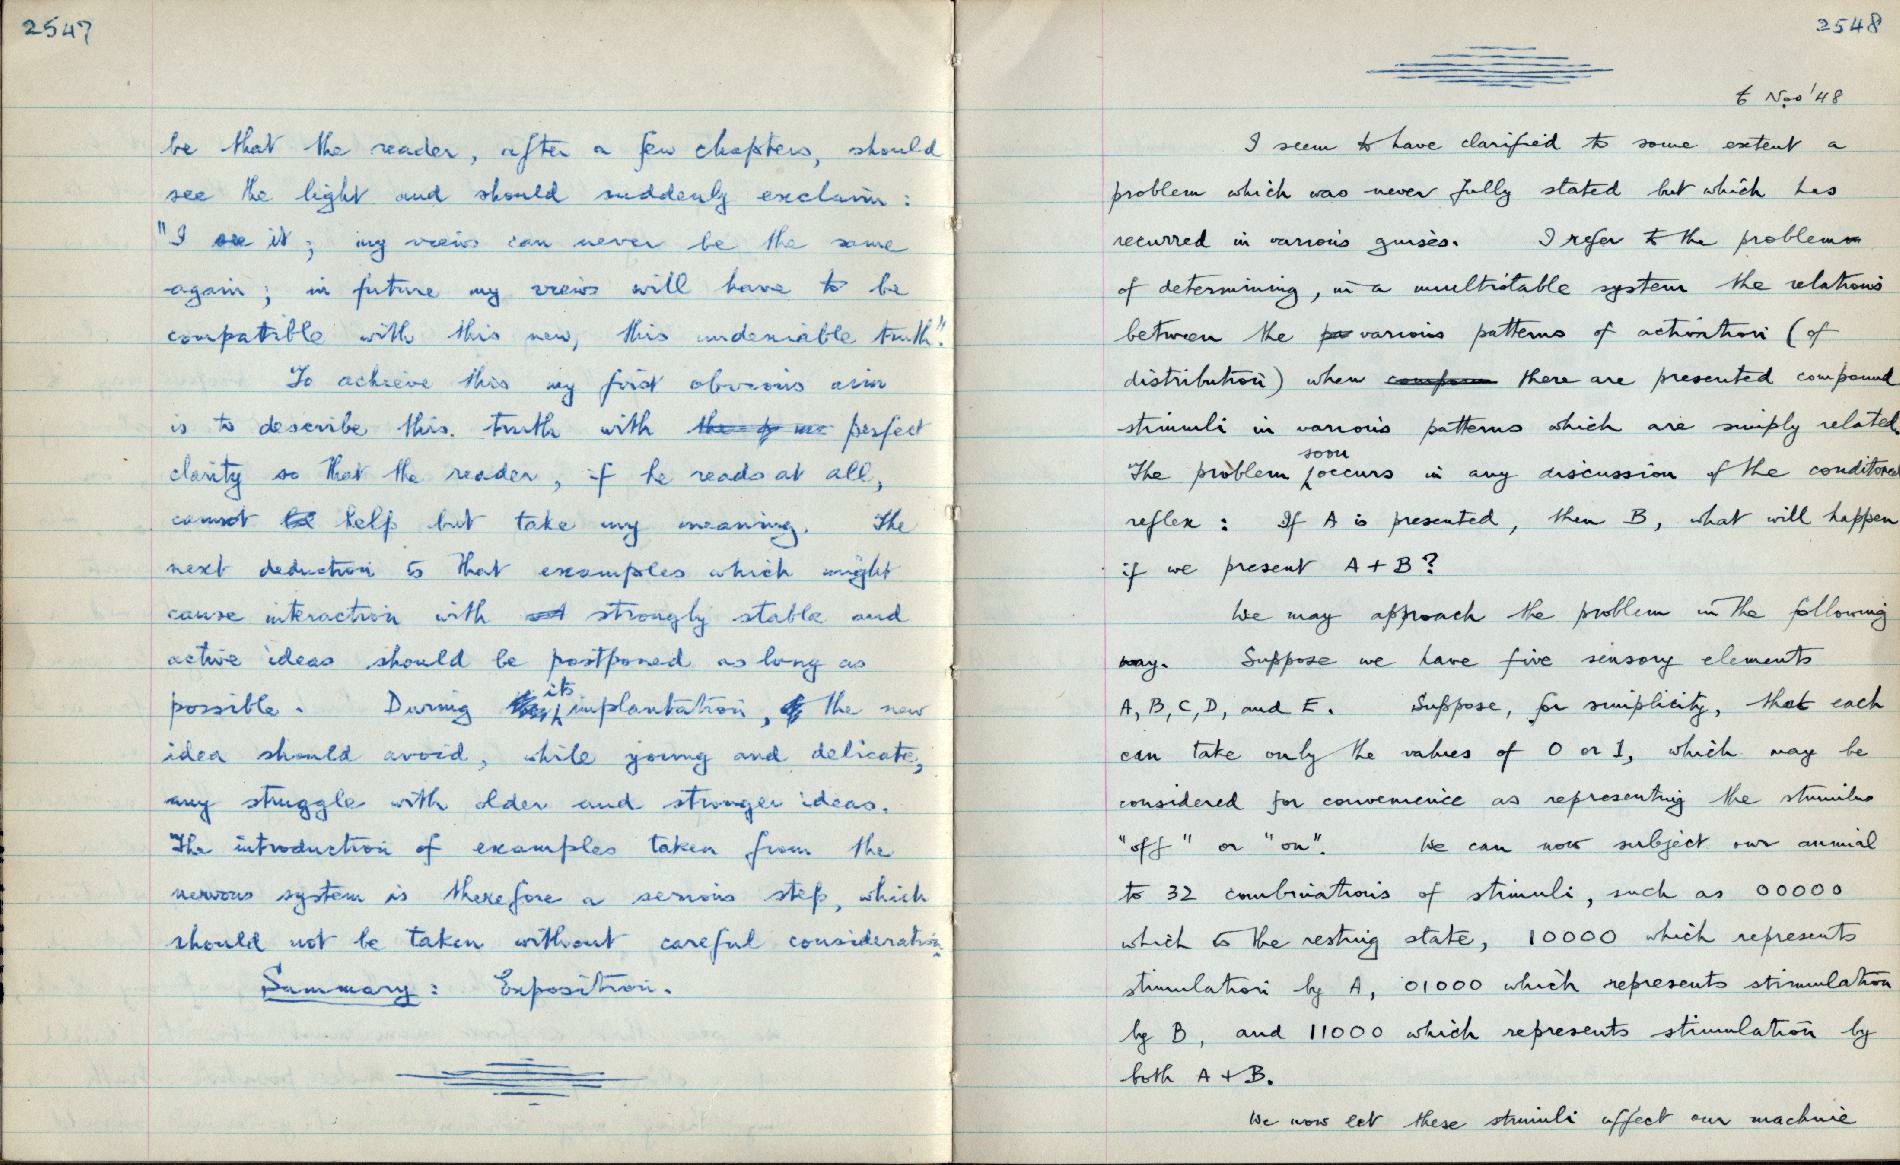 2547
be that the reader, after a few chapters, should
see the light and should suddenly exclaim:
"I see it; my views can never be the same
again; in future my views will have to be
compatible with this new, this undeniable truth."
To achieve this my first obvious aim
is to describe this truth with perfect
clarity so that the reader, if he reads at all,
cannot help but take my meaning. The
next deduction is that examples which might
cause interaction with strongly stable and
active ideas should be postponed as long as
possible. During its implantation, the new
idea should avoid, while young and delicate,
any struggle with older and stronger ideas.
The introduction of examples taken from the
nervous system is therefore a serious step, which
should not be taken without careful consideration.
Summary: Exposition.
2548
6 Nov '48
I seem to have clarified to some extent a
problem which was never fully stated but which has
recurred in various guises. I refer to the problem
of determining, in a multistable system the relations
between the various patterns of activation (of
distribution) when there are presented compound
stimuli in various patterns which are simply related.
The problem soon occurs in any discussion of the conditioned
reflex: If A is presented, then B, what will happen
if we present A + B?
We may approach the problem in the following
way. Suppose we have five sensory elements
A, B, C, D, and E. Suppose, for simplicity, that each
can take only the values of 0 or 1, which may be
considered for convenience as representing the stimulus
"off" or "on". We can now subject our animal
to 32 combinations of stimuli, such as 00000
which is the resting state, 10000 which represents
stimulation by A, 01000 which represents stimulation
by B, and 11000 which represents stimulation by
both A + B.
We now let these stimuli affect our machine